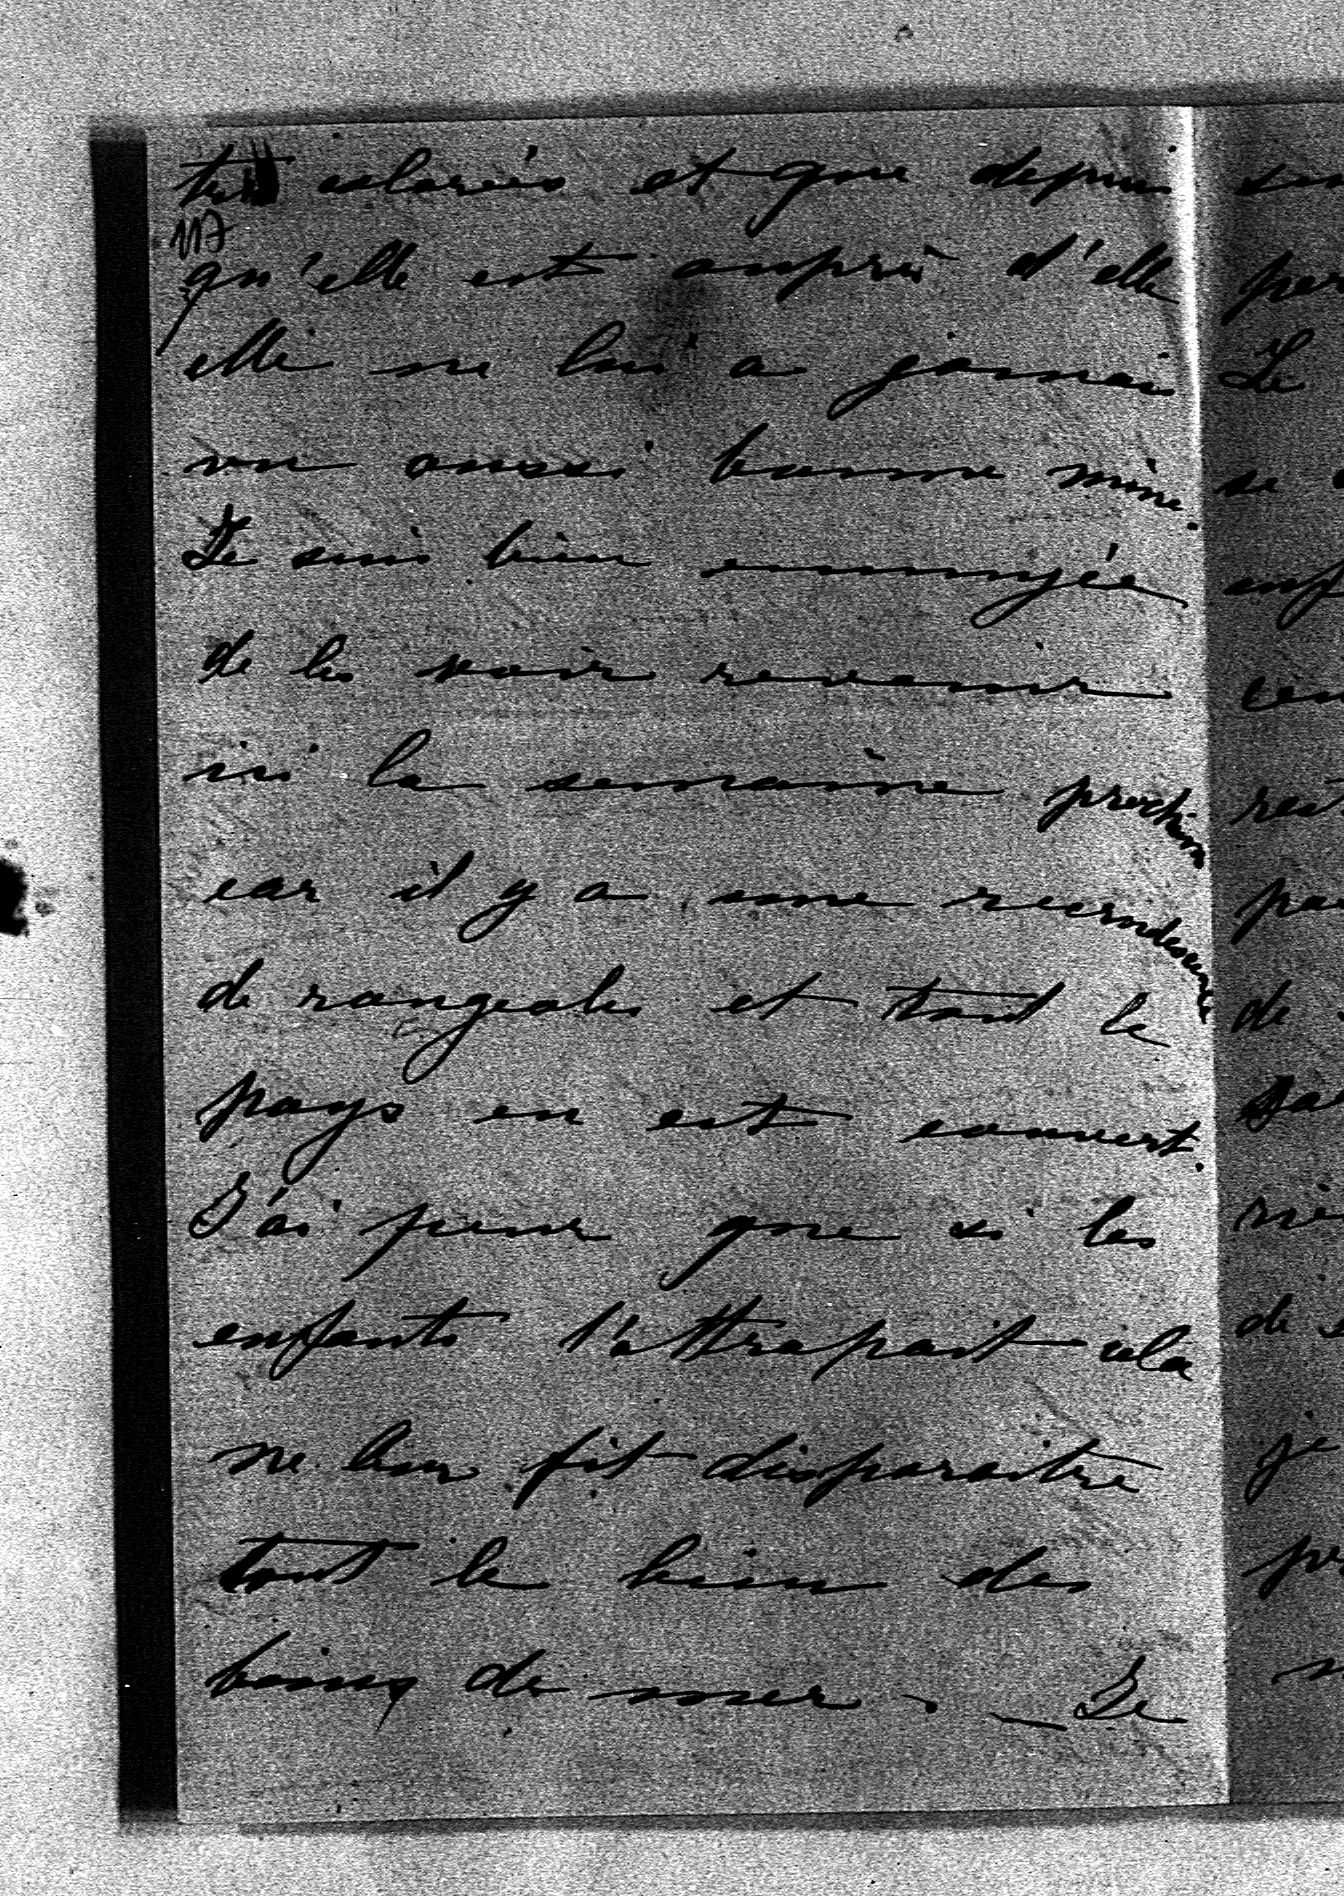 colorés et que depuis
117
qu'elle est auprès d'elle
elle ne lui a jamais
vu aussi bonne mine.
Je suis bien ennuyée
de les voir revenir
ici la semaine prochaine
car il y a une recrudescence
de rougeoles et tout le
pays en est couvert.
J'ai peur que si les
enfants l'attrapait cela
ne leur fit disparaitre
tout le bien des
bains de mer. _ Je